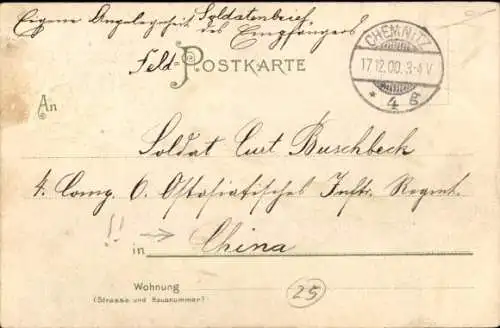 Eigene Angelegenheit des Empfängers
Soldatenbrief
Feld-POSTKARTE
CHEMNITZ
17.12.00.3-4 V
* 4 g
An
Soldat Curt Buschbeck
4. Comp. 6. Ostasiatisches Inftr. Regmt.
!! → in China
Wohnung
(Strasse und Hausnummer)
25